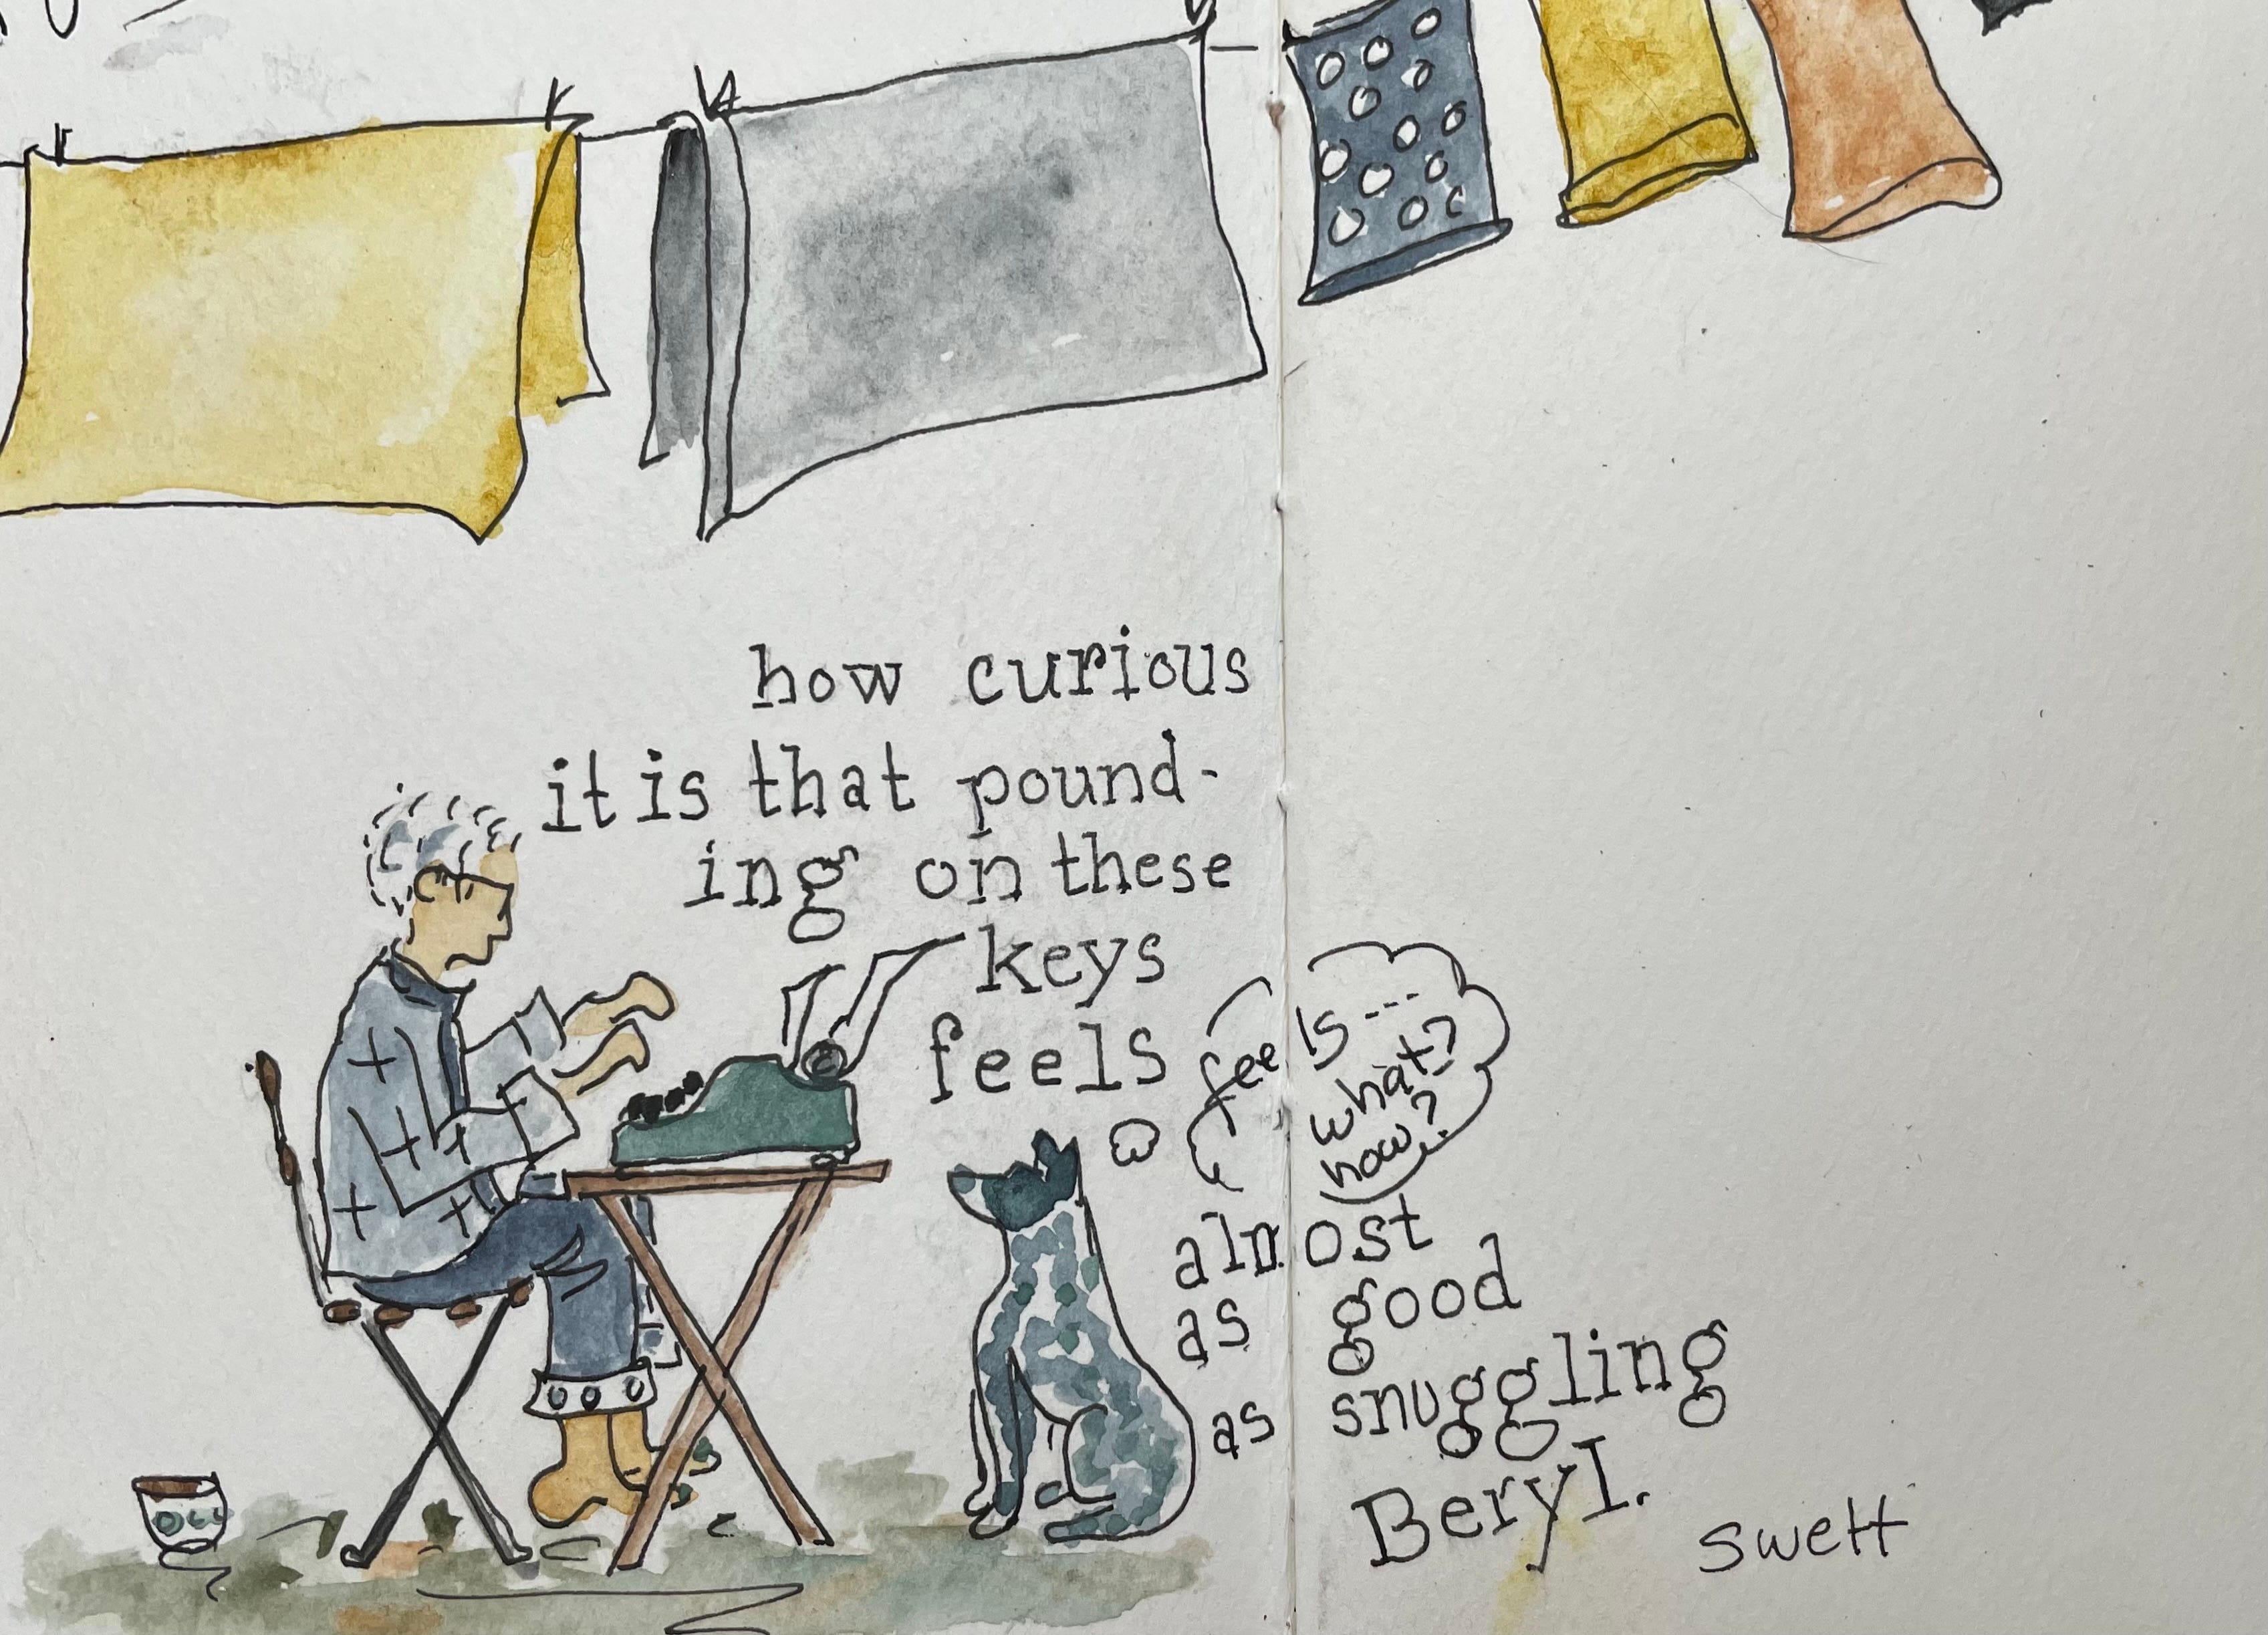 how curious
it is that pound-
ing on these
keys
feels
feels---
what?
how?
almost
as good
as snuggling
Beryl.
swett